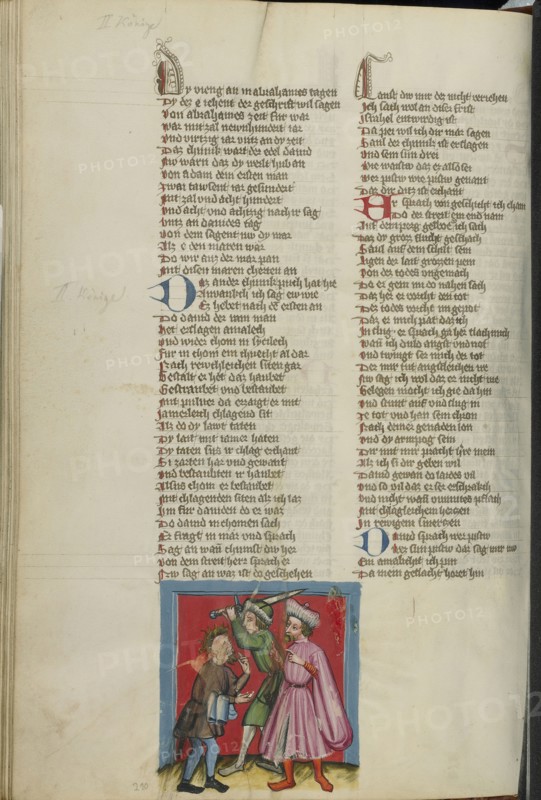 II Könige
Hy vieng an in abrahames tagen
Dy der e ichent der geschrift wil sagen
Von abrahames zeit fur war
War mit zal newnhundert iar
Und virtzig iar untz an dy zeit
Daz chunik wart der edel dauid
Nu warn daz dy welt hub an
Von adam dem ersten man
Zwar tawsent iar gesundert
Mit zal und acht hundert
Und acht und achtzig nach ir sag
Untz an dauides tag
Von dem sagent nu dy mar
Alz e den maren war
Do wir auz der mar pan
Mit disen maren cherten an
Daz ander chunik puch hat hie
Anvankch ich sag ew wie
Er hebet nach dem ersten an
Do dauid der iung man
Het erslagen amalech
Und wider chom in sycelech
Fur in chom ein chnecht al dar
Nach rewchleichen siten gar
Gestalt er het daz haubet
Gestraubet und bestaubet
Mit pulver da erzaigt er mit
Jamerleich chlagend sit
Alz do dy lawt taten
Dy lait mit iamer haten
Dy taten sus ir chlag erchant
Si zarten har und gewant
Und bestaubten ir haubet
Alsus chom er bestaubet
Mit chlagenden siten als ich laz
Im fur dauiden do er waz
Do dauid in chomen sach
Er fragt in mar und sprach
Sag an wann chumst du her
Von dem streit herr sprach er
Nu sag an waz ist do geschehen
Lanst du mir der nicht veriehen
Ich sach wol an diser frist
Israhel entwurdig ist
Da pei wil ich dir mar sagen
Saul der chunik ist erslagen
Und sein sun drei
Wie waistu daz er also sei
Wer pistu wie pistu genant
Daz dir ditz ist erchant
Er sprach von geschicht ich cham
Da der streit ein end nam
Auf dem perg gelboe ich sach
Daz dy groz flucht geschach
Saul auf dem schilt sein
Ligen der lait grozzen pein
Von der todes ungemach
Da er gern im do nahen sach
Daz her er vorcht den tot
Der todes vorcht im gepot
Daz er mich pat daz ich
In slug er sprach ga her slach mich
Wann ich dulde angst und not
Und twingt ser mich der tot
Der mir tut angstleichen we
Nu sag ich wol daz er nicht me
Gelegen mocht ich gie da hin
Und stunt auf und slug in
Ze tot und han sein chron
Nach deiner genaden lon
Und dy armpog sein
Dir mit mir pracht herr mein
Als ich si dir geben wil
Dauid gewan do laides vil
Und so vil daz er ser erschrakch
Und nicht wann unmutes pflakch
Mit chlagleichem herzen
In rewigem smerzen
Dauid sprach wer pistu
Wes sun pistu daz sag mir nu
Ein amalechit ich pin
Da mein geslacht horet hin
II Könige
290
PHOTO12